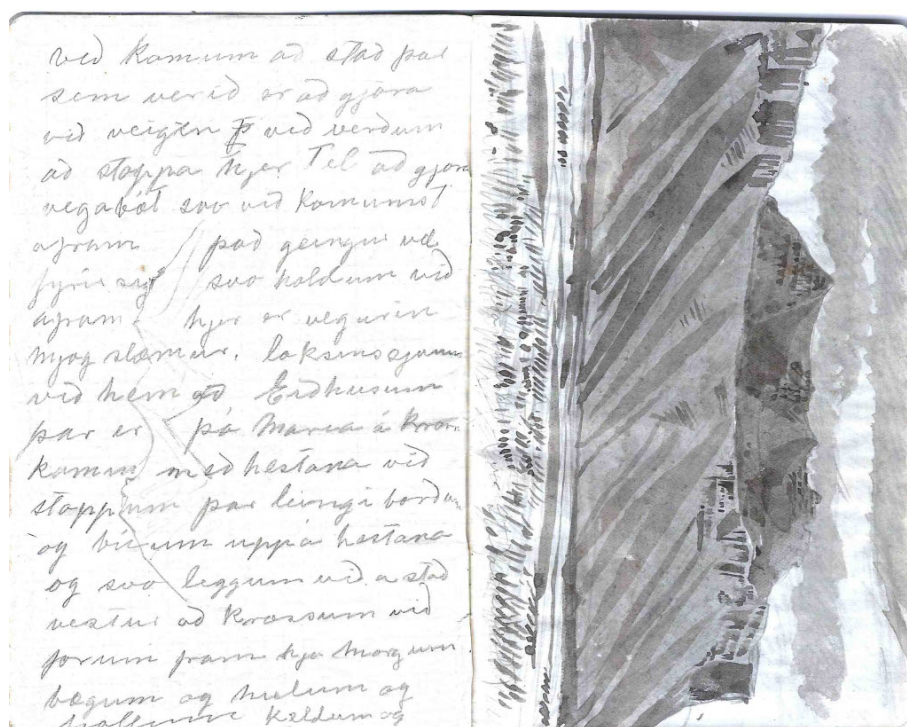 við komum að stað þar
sem verið er að gjöra
við veigin við verðum
að stoppa hjer Tel að gjöra
vegabót svo við komumst
afram það geingur vel
fyrir sig svo holdum við
afram hjer er vegurin
mjog slæmur. loksins sjaum
við heim að Eidhusum
þar er þá Maria á
komin með hestana við
stoppum þar leingi bordum
og buum uppá hestana
og svo leggum við a stað
vestur að Krossum við
forum fram hja morgum
bægum og melum og
kældum og